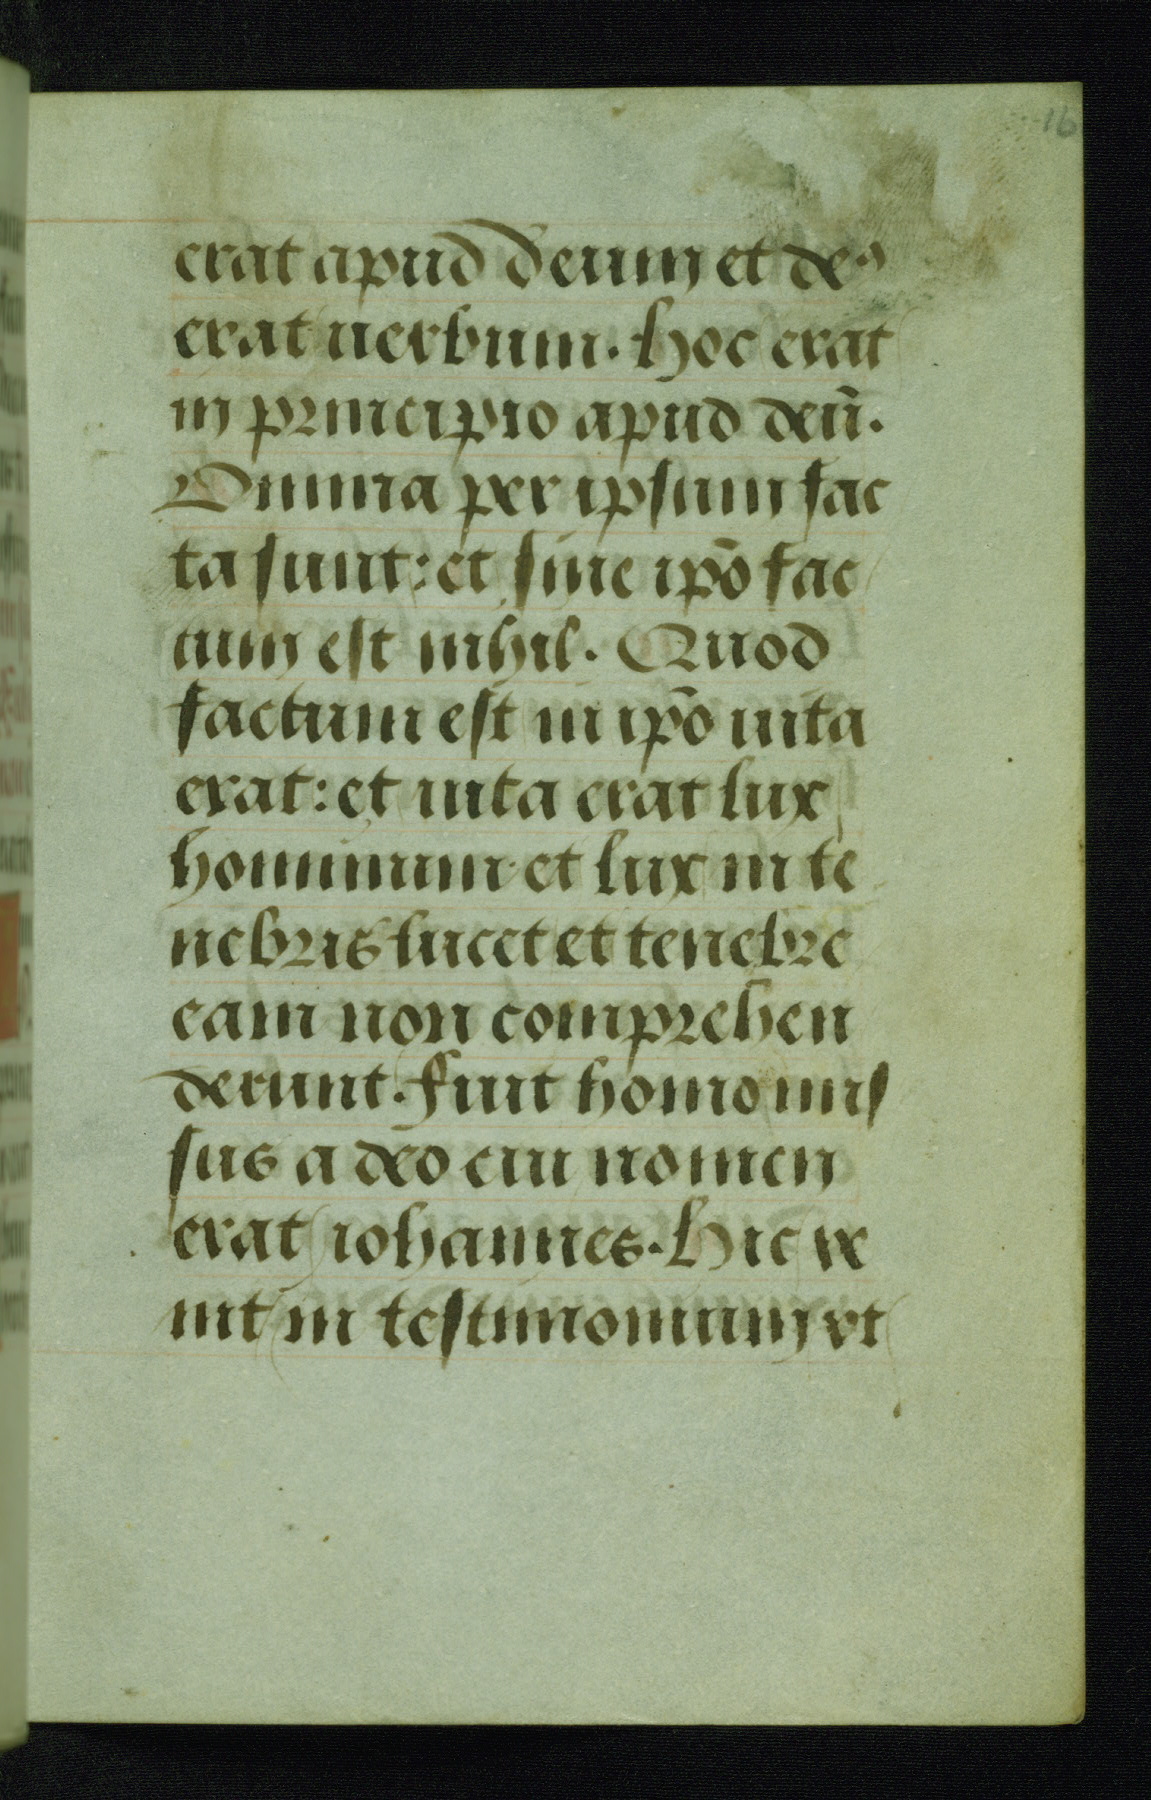 16
erat apud deum et deꝰ
erat uerbum. hoc erat
in principio apud deū.
Omnia per ipsum fac
ta sunt: et sine ip̄o fac
tum est nihil. Quod
factum est in ip̄o uita
erat: et uita erat lux
hominum et lux in te
nebris lucet et tenebre
eam non comprehen
derunt. fuit homo mis
sus a deo cui nomen
erat iohannes. Hic ve
nit in testimonium vt